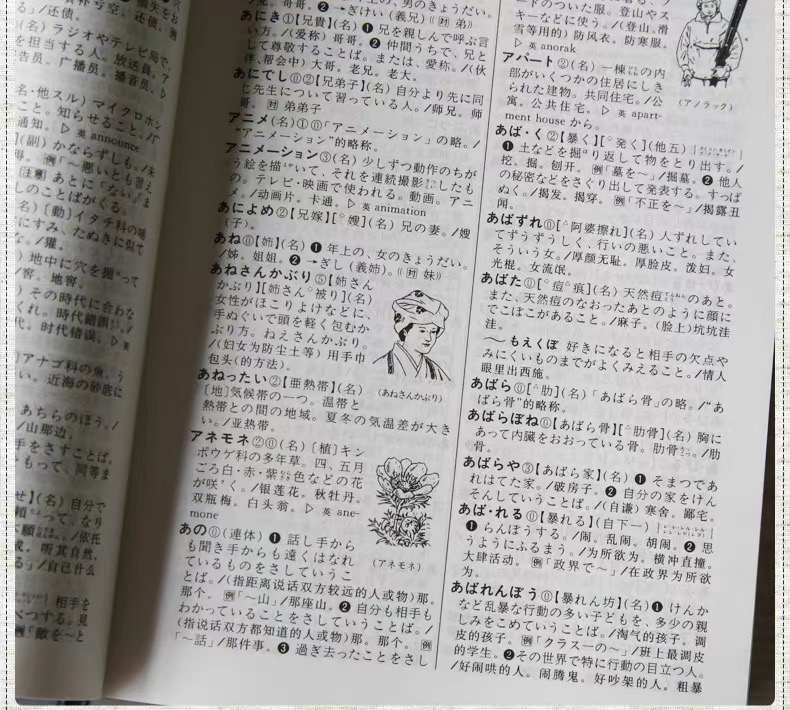 う」/还债。
(名) ラジオやテレビ局で、
を担当する人。放送員。
告员。广播员。播音员。▷
名・他スル) マイクロホン
こと。知らせること。
通知。▷ 英 announce
(副) かならずしも。/未
注意 あとに「ない」ま
しのことばがくる。
名)[動] イタチ科の哺
にすみ、たぬきに似て
。/獾。
地中に穴を掘って
/窖。地窖。
その時代に合わな
くれ。時代錯誤。/
代。时代错误。▷英
アナゴ科の魚。う
い。近海の砂底に
あちらのほう。/
/山那边。
手をさすことば。
もって、同等ま
(名) 自分で
って、なり
/依托
听其自然。
る」/自己什么
相手を
べつする。見
例「敵を〜と
❷→ぎけい (義兄)《対 弟》
あにき①【兄貴】(名) ❶ 兄を親しんで呼ぶ言
い方。/(爱称) 哥哥。❷ 仲間うちで、兄と
して尊敬することば。または、愛称。/(伙
伴、帮会中) 大哥。老兄。老大。
あにでし⓪②【兄弟子】(名) 自分より先に同
じ先生について習っている人。/师兄。师
哥。対 弟弟子
アニメ(名)①⓪「アニメーション」の略。/
“アニメーション”的略称。
アニメーション③(名) 少しずつ動作のちが
う絵を描いて、それを連続撮影したも
の。テレビ・映画で使われる。動画。アニ
メ。/动画片。卡通。▷ 英 animation
あによめ②【兄嫁】【°嫂】(名) 兄の妻。/嫂
(子)。
あね⓪【姉】(名) ❶ 年上の、女のきょうだい。
/姊。姐姐。❷→ぎし (義姉)。《対 妹》
あねさんかぶり⑤【姉さん
かぶり】【姉さん°被り】(名)
女性がほこりよけなどに、
手ぬぐいで頭を軽く包むか
ぶり方。ねえさんかぶり。
/(妇女为防尘土等) 用手巾
包头(的方法)。
(あねさんかぶり)
あねったい②【亜熱帯】(名)
[地] 気候帯の一つ。温帯と
熱帯との間の地域。夏冬の気温差が大き
い。/亚热带。
アネモネ②⓪(名)[植] キン
ポウゲ科の多年草。四、五月
ごろ白・赤・紫色などの花
が咲く。/银莲花。秋牡丹。
双瓶梅。白头翁。▷ 英 ane-
mone
(アネモネ)
あの⓪(連体) ❶ 話し手から
も聞き手からも遠くはなれ
ているものをさしていうこ
とば。/(指距离说话双方较远的人或物)那。
那个。例「〜山」/那座山。❷ 自分も相手も
わかっていることをさしていうことば。/
(指说话双方都知道的人或物)那。那个。例
「〜話」/那件事。❸ 過ぎ去ったことをさし
下のついた服。登山やス
キーなどに使う。/(登山、滑
雪等用的) 防风衣。防寒服。
▷ 英 anorak
(アノラック)
アパート②(名) 一棟の内
部がいくつかの住居にしき
られた建物。共同住宅。/公
寓。公共住宅。▷ 英 apart-
ment house から。
あば・く②【暴く】【°発く】(他五)
❶ 土などを掘り返して物をとり出す。/
挖。掘。刨开。例「墓を〜」/掘墓。❷ 他人
の秘密などをさぐり出して発表する。すっぱ
ぬく。/揭发。揭穿。例「不正を〜」/揭露丑
闻。
あばずれ⓪【△阿婆擦れ】(名) 人ずれしてい
てずうずうしく、行いの悪いこと。また、
そういう女。/厚颜无耻。厚脸皮。泼妇。女
光棍。女流氓。
あばた⓪【△痘△痕】(名) 天然痘のあと。
また、天然痘のなおったあとのように顔に
でこぼこがあること。/麻子。(脸上)坑坑洼
洼。
〜もえくぼ 好きになると相手の欠点や
みにくいものまでがよくみえること。/情人
眼里出西施。
あばら⓪【△肋】(名)「あばら骨」の略。/“あ
ばら骨”的略称。
あばらぼね⓪【あばら骨】【△肋骨】(名) 胸に
あって内臓をおおっている骨。肋骨。/肋
骨。
あばらや③【あばら家】(名) ❶ そまつであ
れはてた家。/破房子。❷ 自分の家をけん
そんしていうことば。/(自谦) 寒舍。鄙宅。
あば・れる⓪【暴れる】(自下一)
❶ らんぼうする。/闹。乱闹。胡闹。❷ 思
うようにふるまう。/为所欲为。横冲直撞。
大肆活动。例「政界で〜」/在政界为所欲
为。
あばれんぼう⓪【暴れん坊】(名) ❶ けんか
など乱暴な行動の多い子どもを、多少の親
しみをこめていうことば。/淘气的孩子。调
皮的孩子。例「クラス一の〜」/班上最调皮
的学生。❷ その世界で特に行動の目立つ人。
/好闹哄的人。闹腾鬼。好吵架的人。粗暴